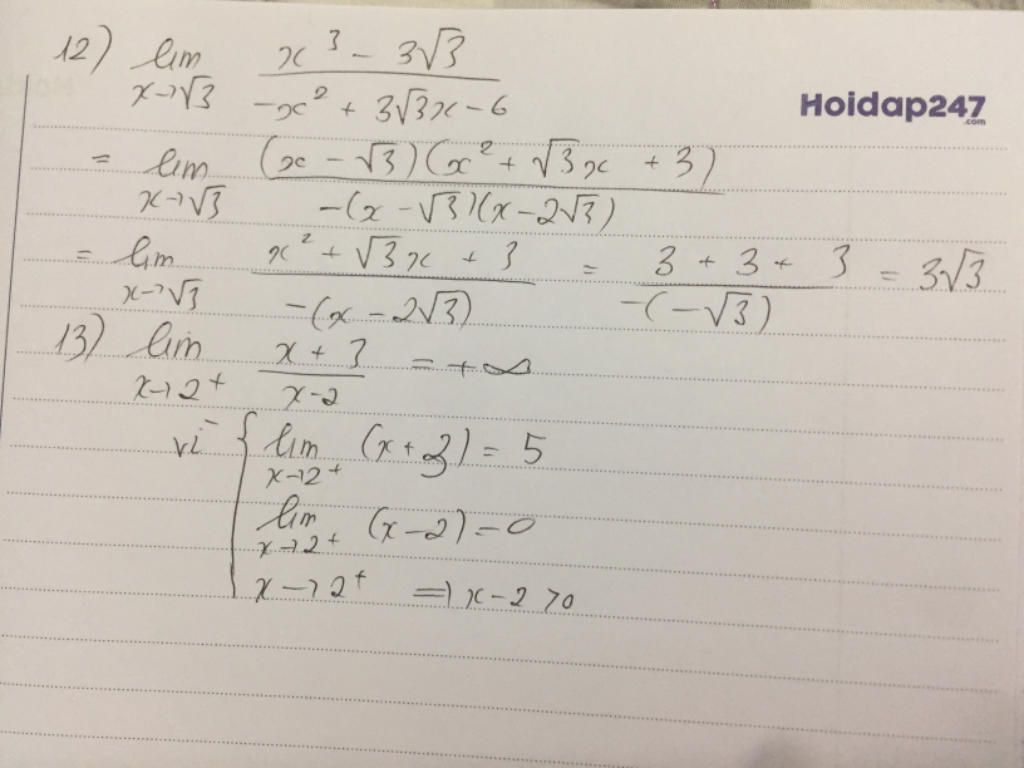 12) lim x→√3 (x³ - 3√3)/(-x² + 3√3x - 6)
Hoidap247.com
= lim x→√3 ((x - √3)(x² + √3x + 3))/(-(x - √3)(x - 2√3))
= lim x→√3 (x² + √3x + 3)/(-(x - 2√3)) = (3 + 3 + 3)/(-(-√3)) = 3√3
13) lim x→2⁺ (x + 3)/(x - 2) = +∞
vì { lim x→2⁺ (x + 3) = 5
lim x→2⁺ (x - 2) = 0
x→2⁺ ⇒ x - 2 > 0